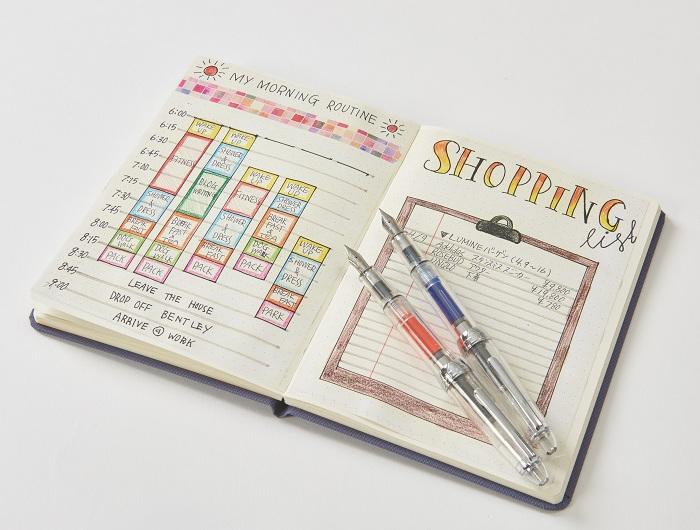 MY MORNING ROUTINE
6:00
6:15
6:30
6:45
7:00
7:15
7:30
7:45
8:00
8:15
8:30
8:45
9:00
WAKE UP
FITNESS
SHOWER & DRESS
BREAK FAST & TEA
DOG WALK
PACK
WAKE UP
SHOWER & DRESS
BLOG WRITING
BREAK FAST & TEA
DOG WALK
PACK
WAKE UP
FITNESS
SHOWER & DRESS
BREAK FAST & TEA
DOG WALK
PACK
WAKE UP
SHOWER & DRESS
BREAK FAST & TEA
DOG WALK
PACK
WAKE UP
SHOWER & DRESS
BREAK FAST
PARK
LEAVE THE HOUSE
DROP OFF BENTLEY
ARRIVE @ WORK
SHOPPING
list
▼LUMINEバーゲン (4.9~16)